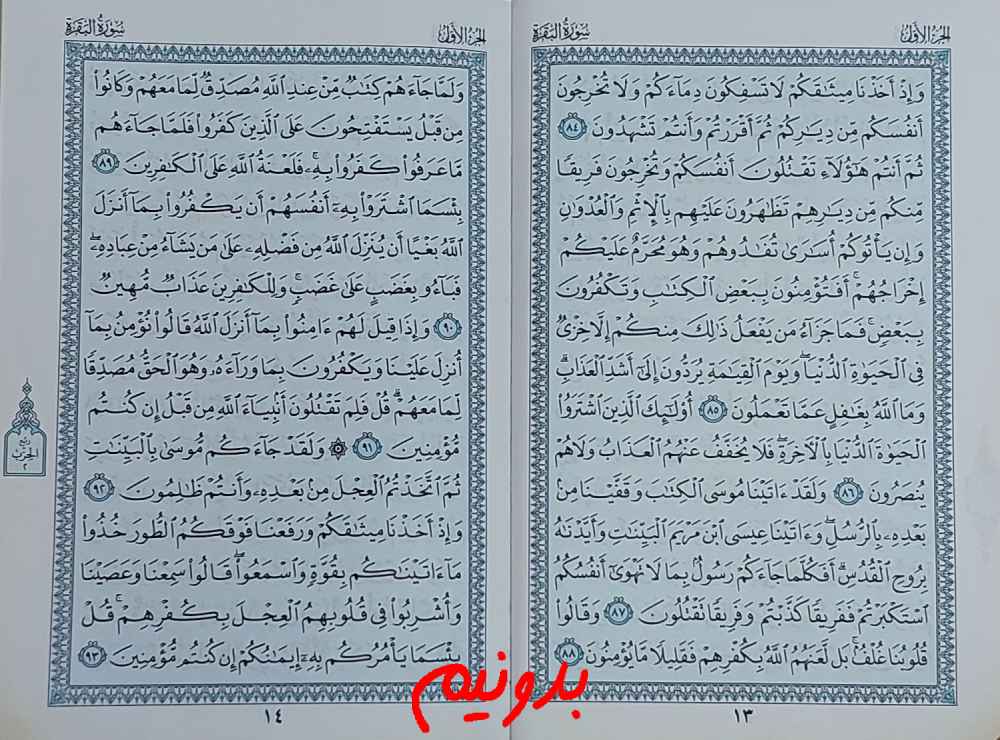 الجزء الأول
سورة البقرة
وَإِذْ أَخَذْنَا مِيثَٰقَكُمْ لَا تَسْفِكُونَ دِمَآءَكُمْ وَلَا تُخْرِجُونَ
أَنفُسَكُم مِّن دِيَٰرِكُمْ ثُمَّ أَقْرَرْتُمْ وَأَنتُمْ تَشْهَدُونَ ٨٤
ثُمَّ أَنتُمْ هَٰٓؤُلَآءِ تَقْتُلُونَ أَنفُسَكُمْ وَتُخْرِجُونَ فَرِيقًا
مِّنكُم مِّن دِيَٰرِهِمْ تَظَٰهَرُونَ عَلَيْهِم بِٱلْإِثْمِ وَٱلْعُدْوَٰنِ
وَإِن يَأْتُوكُمْ أُسَٰرَىٰ تُفَٰدُوهُمْ وَهُوَ مُحَرَّمٌ عَلَيْكُمْ
إِخْرَاجُهُمْ ۚ أَفَتُؤْمِنُونَ بِبَعْضِ ٱلْكِتَٰبِ وَتَكْفُرُونَ
بِبَعْضٍ ۚ فَمَا جَزَآءُ مَن يَفْعَلُ ذَٰلِكَ مِنكُمْ إِلَّا خِزْىٌ
فِى ٱلْحَيَوٰةِ ٱلدُّنْيَا ۖ وَيَوْمَ ٱلْقِيَٰمَةِ يُرَدُّونَ إِلَىٰٓ أَشَدِّ ٱلْعَذَابِ ۗ
وَمَا ٱللَّهُ بِغَٰفِلٍ عَمَّا تَعْمَلُونَ ٨٥ أُو۟لَٰٓئِكَ ٱلَّذِينَ ٱشْتَرَوُا۟
ٱلْحَيَوٰةَ ٱلدُّنْيَا بِٱلْءَاخِرَةِ ۖ فَلَا يُخَفَّفُ عَنْهُمُ ٱلْعَذَابُ وَلَا هُمْ
يُنصَرُونَ ٨٦ وَلَقَدْ ءَاتَيْنَا مُوسَى ٱلْكِتَٰبَ وَقَفَّيْنَا مِنۢ
بَعْدِهِۦ بِٱلرُّسُلِ ۖ وَءَاتَيْنَا عِيسَى ٱبْنَ مَرْيَمَ ٱلْبَيِّنَٰتِ وَأَيَّدْنَٰهُ
بِرُوحِ ٱلْقُدُسِ ۗ أَفَكُلَّمَا جَآءَكُمْ رَسُولٌۢ بِمَا لَا تَهْوَىٰٓ أَنفُسُكُمُ
ٱسْتَكْبَرْتُمْ فَفَرِيقًا كَذَّبْتُمْ وَفَرِيقًا تَقْتُلُونَ ٨٧ وَقَالُوا۟
قُلُوبُنَا غُلْفٌۢ ۚ بَل لَّعَنَهُمُ ٱللَّهُ بِكُفْرِهِمْ فَقَلِيلًا مَّا يُؤْمِنُونَ ٨٨
١٣
الجزء الأول
سورة البقرة
وَلَمَّا جَآءَهُمْ كِتَٰبٌ مِّنْ عِندِ ٱللَّهِ مُصَدِّقٌ لِّمَا مَعَهُمْ وَكَانُوا۟
مِن قَبْلُ يَسْتَفْتِحُونَ عَلَى ٱلَّذِينَ كَفَرُوا۟ فَلَمَّا جَآءَهُم
مَّا عَرَفُوا۟ كَفَرُوا۟ بِهِۦ ۚ فَلَعْنَةُ ٱللَّهِ عَلَى ٱلْكَٰفِرِينَ ٨٩
بِئْسَمَا ٱشْتَرَوْا۟ بِهِۦٓ أَنفُسَهُمْ أَن يَكْفُرُوا۟ بِمَآ أَنزَلَ
ٱللَّهُ بَغْيًا أَن يُنَزِّلَ ٱللَّهُ مِن فَضْلِهِۦ عَلَىٰ مَن يَشَآءُ مِنْ عِبَادِهِۦ ۖ
فَبَآءُو بِغَضَبٍ عَلَىٰ غَضَبٍ ۚ وَلِلْكَٰفِرِينَ عَذَابٌ مُّهِينٌ
٩٠ وَإِذَا قِيلَ لَهُمْ ءَامِنُوا۟ بِمَآ أَنزَلَ ٱللَّهُ قَالُوا۟ نُؤْمِنُ بِمَآ
أُنزِلَ عَلَيْنَا وَيَكْفُرُونَ بِمَا وَرَآءَهُۥ وَهُوَ ٱلْحَقُّ مُصَدِّقًا
لِّمَا مَعَهُمْ ۗ قُلْ فَلِمَ تَقْتُلُونَ أَنۢبِيَآءَ ٱللَّهِ مِن قَبْلُ إِن كُنتُم
مُّؤْمِنِينَ ٩١ ۞ وَلَقَدْ جَآءَكُم مُّوسَىٰ بِٱلْبَيِّنَٰتِ
ثُمَّ ٱتَّخَذْتُمُ ٱلْعِجْلَ مِنۢ بَعْدِهِۦ وَأَنتُمْ ظَٰلِمُونَ ٩٢
وَإِذْ أَخَذْنَا مِيثَٰقَكُمْ وَرَفَعْنَا فَوْقَكُمُ ٱلطُّورَ خُذُوا۟
مَآ ءَاتَيْنَٰكُم بِقُوَّةٍ وَٱسْمَعُوا۟ ۖ قَالُوا۟ سَمِعْنَا وَعَصَيْنَا
وَأُشْرِبُوا۟ فِى قُلُوبِهِمُ ٱلْعِجْلَ بِكُفْرِهِمْ ۚ قُلْ
بِئْسَمَا يَأْمُرُكُم بِهِۦٓ إِيمَٰنُكُمْ إِن كُنتُم مُّؤْمِنِينَ ٩٣
١٤
ربع
الحزب
٢
بدونیم